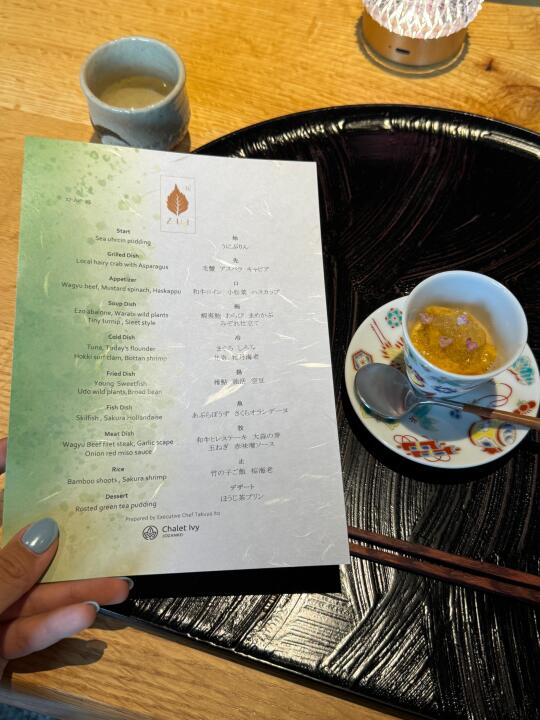 ZUI
Start
Sea uhrcin pudding
始
うにぷりん
Grilled Dish
Local hairy crab with Asparagus
先
毛蟹 アスパラ キャビア
Appetizer
Wagyu beef, Mustard spinach, Haskappu
口
和牛ロイン 小松菜 ハスカップ
Soup Dish
Ezo abalone, Warabi wild plants
Tiny turnip , Sleet style
椀
蝦夷鮑 わらび まめかぶ
みぞれ仕立て
Cold Dish
Tuna, Today's flounder
Hokki surf clam, Bottan shrimp
冷
まぐろ しろみ
牡丹海老
Fried Dish
Young Sweetfish
Udo wild plants,Broad bean
揚
稚鮎 独活 空豆
Fish Dish
Skilfish , Sakura Hollandaise
魚
あぶらぼうず さくらオランデーヌ
Meat Dish
Wagyu Beef filet steak, Garlic scape
Onion red miso sauce
和牛ヒレステーキ 大蒜の芽
玉ねぎ 赤味噌ソース
Rice
Bamboo shoots , Sakura shrimp
止
竹の子ご飯 桜海老
Dessert
Rosted green tea pudding
デザート
ほうじ茶プリン
Prepared by Executive Chef Takuya Ito
Chalet Ivy
JOZANKEI